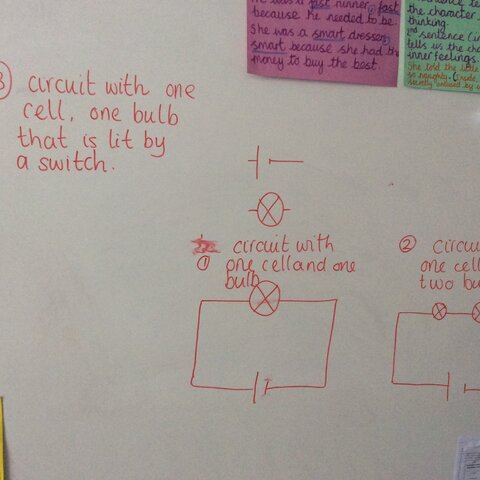 He was a fast runner, fast
because he needed to be.
She was a smart dresser,
smart because she had the
money to buy the best.
the character
thinking.
2nd sentence (in
tells us the cha
inner feelings.
She told the little
3) circuit with one
cell, one bulb
that is lit by
a switch.
① circuit with
one cell and one
bulb
② circui
one cell
two bu